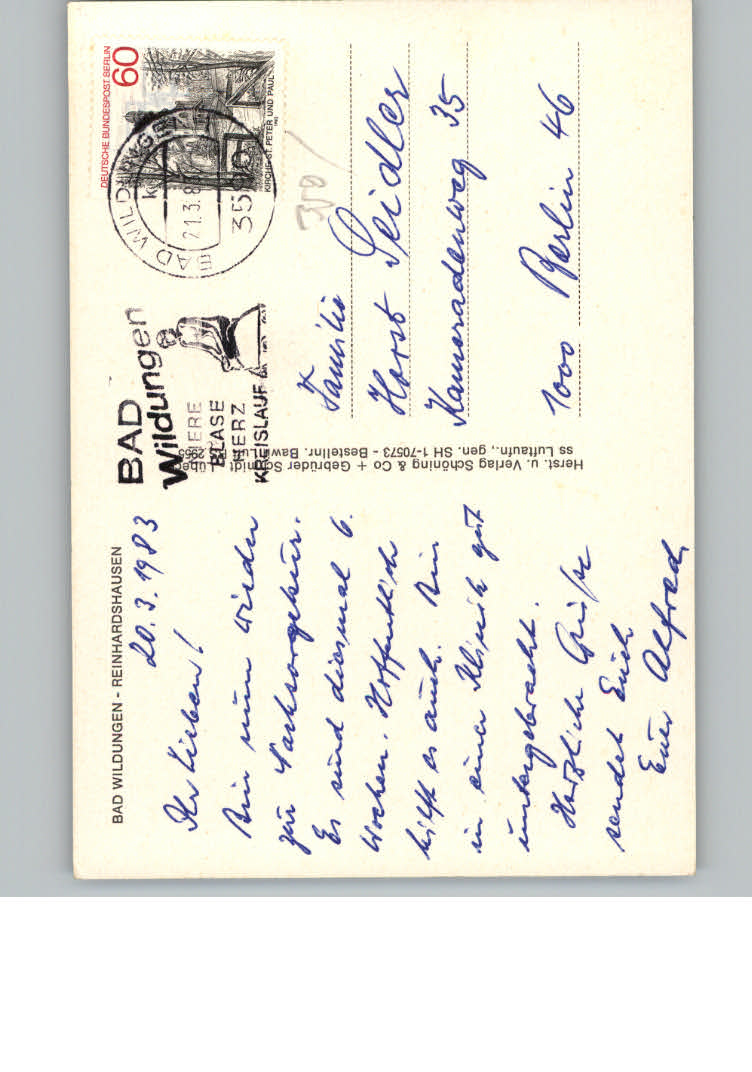 BAD WILDUNGEN - REINHARDSHAUSEN
20.3.1983
Ihr Lieben!
Bin nun wieder
zur Nachsorgekur.
Es sind diesmal 6
Wochen. Hoffentlich
hilft es auch. Bin
in einer Klinik gut
untergebracht.
Herzliche Grüße
sendet Euch
Euer Alfred
Herst. u. Verlag Schöning & Co + Gebrüder Schmidt, Lübeck
ss Luftaufn., gen. SH 1-70573 - Bestellnr. Baw
BAD
Wildungen
NIERE
BLASE
HERZ
KREISLAUF
BAD WILDUNGEN
21.3.8
3590
DEUTSCHE BUNDESPOST BERLIN
60
KIRCHE ST. PETER UND PAUL
350/
Familie
Horst Seidler
Kameradenweg 35
1000 Berlin 46